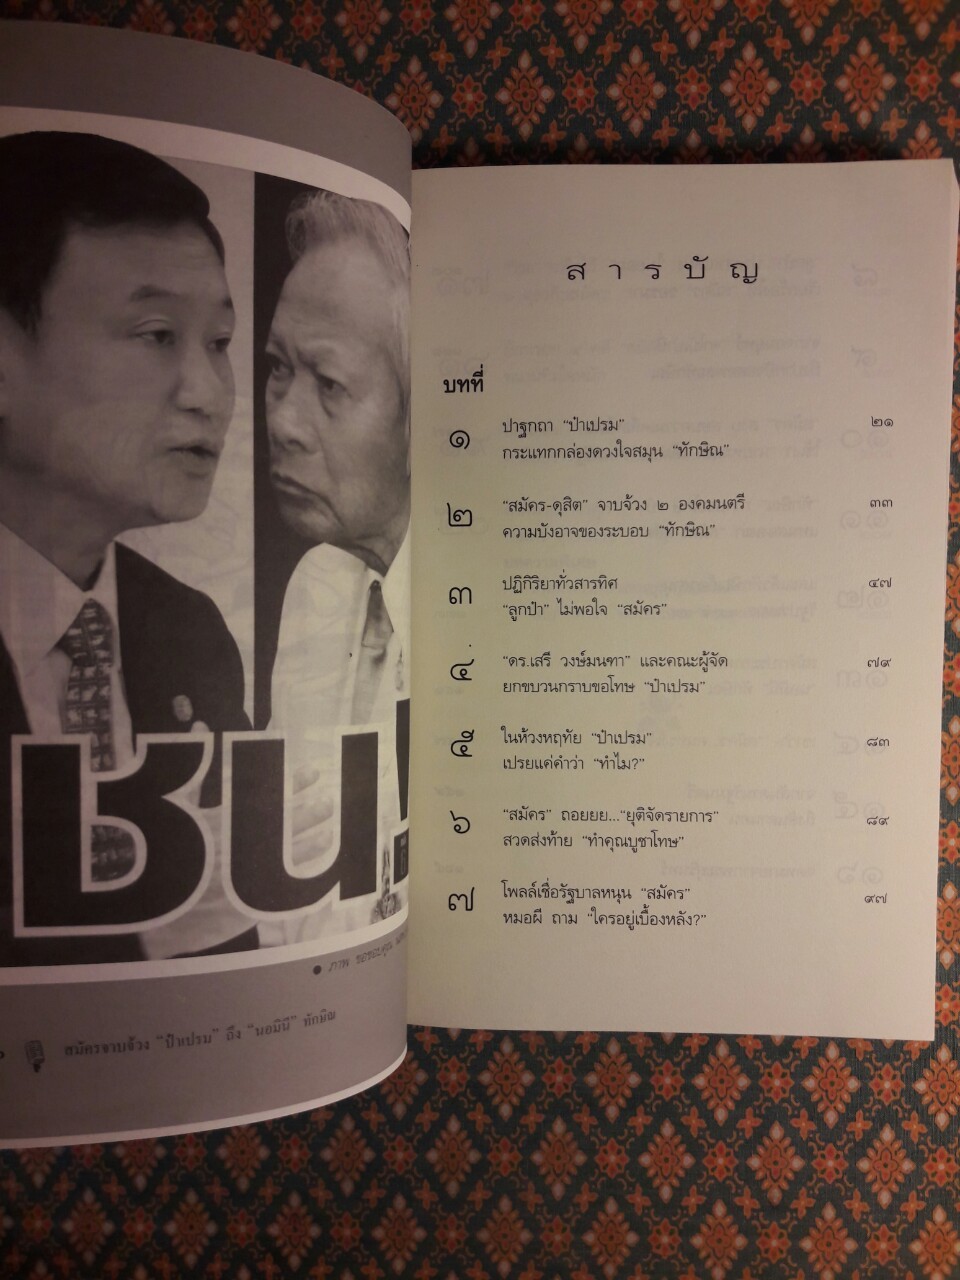 ชน!
● ภาพ ขอขอบคุณ
สมัครจาบจ้วง “ป๋าเปรม” ถึง “นอมินี” ทักษิณ
สารบัญ
บทที่
๑ ปาฐกถา “ป๋าเปรม” ๒๑
กระแทกกล่องดวงใจสมุน “ทักษิณ”
๒ “สมัคร-ดุสิต” จาบจ้วง ๒ องคมนตรี ๓๓
ความบังอาจของระบอบ “ทักษิณ”
๓ ปฏิกิริยาทั่วสารทิศ ๔๗
“ลูกป๋า” ไม่พอใจ “สมัคร”
๔ “ดร.เสรี วงษ์มนฑา” และคณะผู้จัด ๗๙
ยกขบวนกราบขอโทษ “ป๋าเปรม”
๕ ในห้วงหฤทัย “ป๋าเปรม” ๘๓
เปรยแค่คำว่า “ทำไม?”
๖ “สมัคร” ถอยยย...“ยุติจัดรายการ” ๘๙
สวดส่งท้าย “ทำคุณบูชาโทษ”
๗ โพลล์เชื่อรัฐบาลหนุน “สมัคร” ๙๗
หมอผี ถาม “ใครอยู่เบื้องหลัง?”